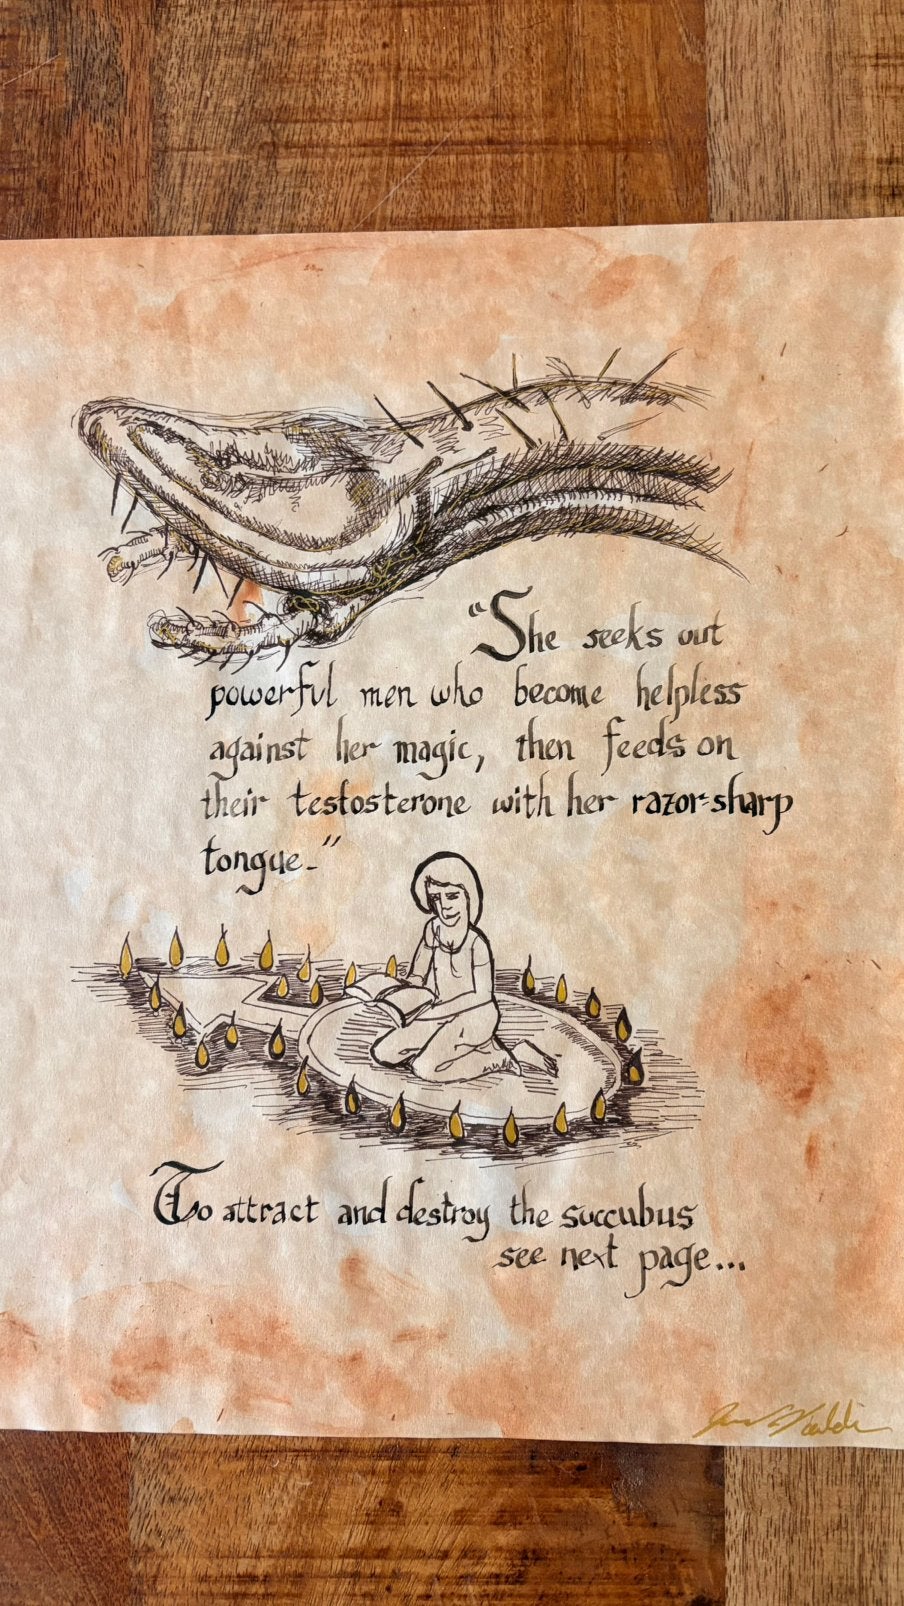 "She seeks out
powerful men who become helpless
against her magic, then feeds on
their testosterone with her razor-sharp
tongue."
To attract and destroy the succubus
see next page...